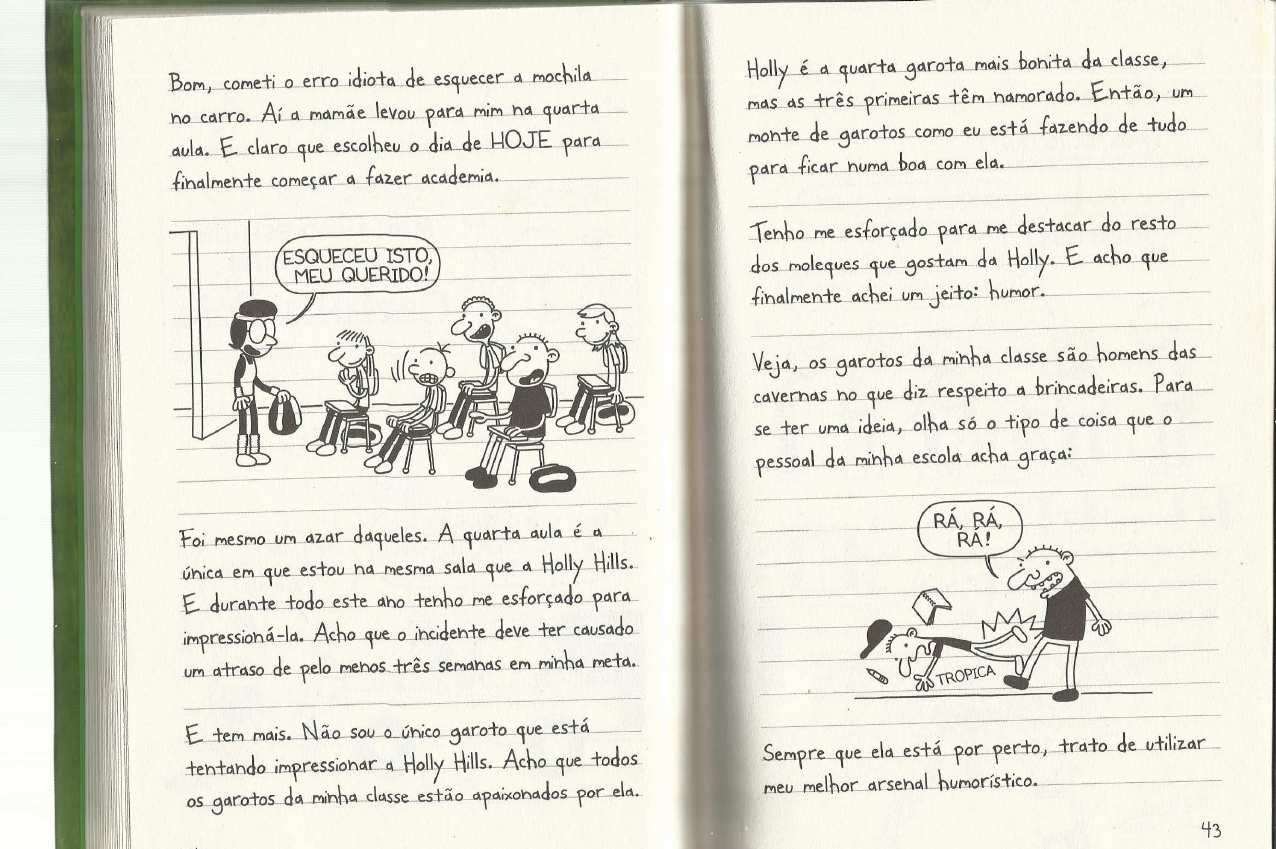 Bom, cometi o erro idiota de esquecer a mochila
no carro. Aí a mamãe levou para mim na quarta
aula. E claro que escolheu o dia de HOJE para
finalmente começar a fazer academia.
ESQUECEU ISTO,
MEU QUERIDO!
Foi mesmo um azar daqueles. A quarta aula é a
única em que estou na mesma sala que a Holly Hills.
E durante todo este ano tenho me esforçado para
impressioná-la. Acho que o incidente deve ter causado
um atraso de pelo menos três semanas em minha meta.
E tem mais. Não sou o único garoto que está
tentando impressionar a Holly Hills. Acho que todos
os garotos da minha classe estão apaixonados por ela.
Holly é a quarta garota mais bonita da classe,
mas as três primeiras têm namorado. Então, um
monte de garotos como eu está fazendo de tudo
para ficar numa boa com ela.
Tenho me esforçado para me destacar do resto
dos moleques que gostam da Holly. E acho que
finalmente achei um jeito: humor.
Veja, os garotos da minha classe são homens das
cavernas no que diz respeito a brincadeiras. Para
se ter uma ideia, olha só o tipo de coisa que o
pessoal da minha escola acha graça:
RÁ, RÁ,
RÁ!
TROPICA
Sempre que ela está por perto, trato de utilizar
meu melhor arsenal humorístico.
43